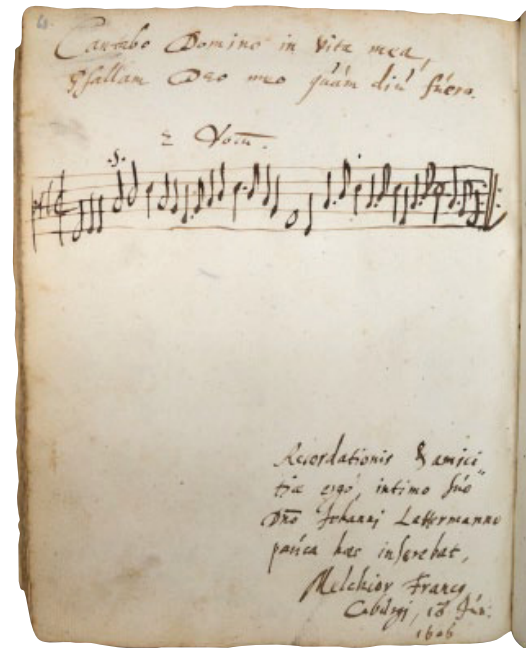 4.
Cantabo Domino in Vita mea,
Psallam Deo meo quàm diu fúero.
2 Vocū.
.S.
Recordationis & amici„
tiæ ergò, intimo súo
Dn̄o Johanni Lattermanno
paúca hæc inserebat,
Melchior Franco
Cobúrgi, 18. Jún.
1606